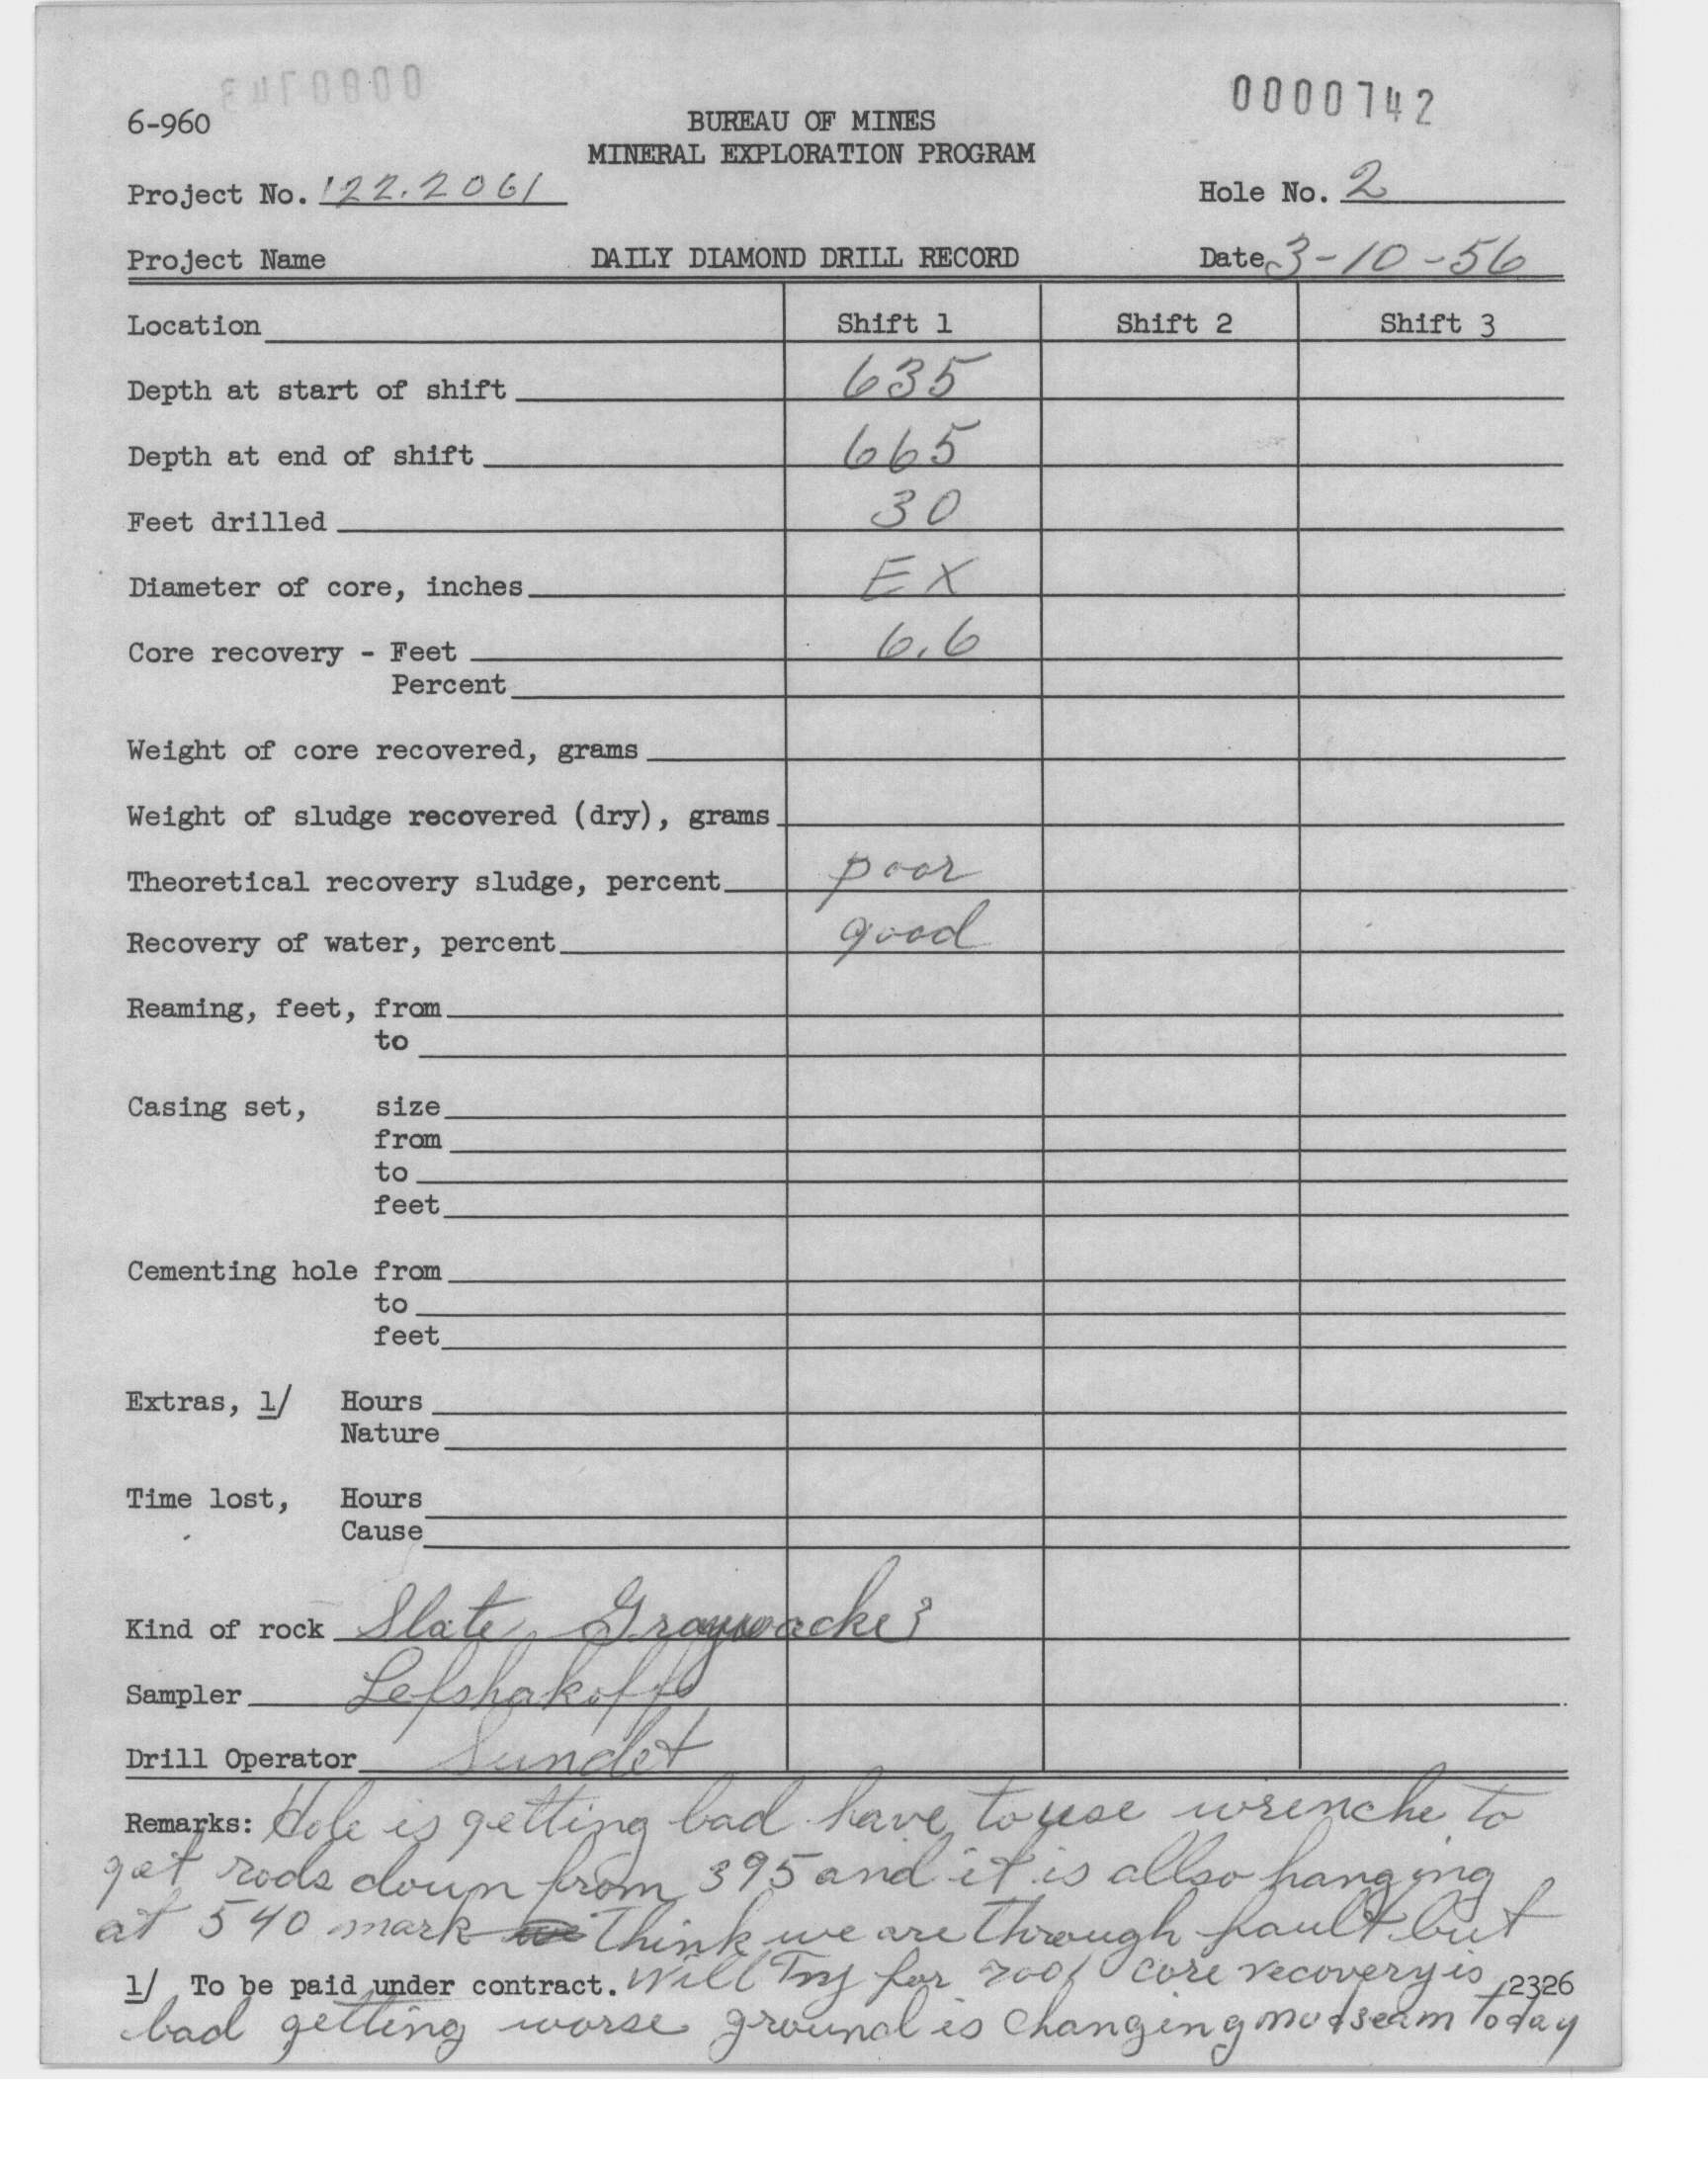 0000742
6-960
BUREAU OF MINES
MINERAL EXPLORATION PROGRAM
Project No. 122.2061
Hole No. 2
Project Name DAILY DIAMOND DRILL RECORD Date 3-10-56
Location Shift 1 Shift 2 Shift 3
Depth at start of shift 635
Depth at end of shift 665
Feet drilled 30
Diameter of core, inches EX
Core recovery - Feet 6.6
Percent
Weight of core recovered, grams
Weight of sludge recovered (dry), grams
Theoretical recovery sludge, percent poor
Recovery of water, percent good
Reaming, feet, from
to
Casing set, size
from
to
feet
Cementing hole from
to
feet
Extras, 1/ Hours
Nature
Time lost, Hours
Cause
Kind of rock Slate, Graywacke
Sampler Lefshakoff
Drill Operator Sundet
Remarks: Hole is getting bad have to use wrenche to
get rods down from 395 and it is allso hanging
at 540 mark Think we are through fault but
1/ To be paid under contract. Will Try for 700f core recovery is 2326
bad getting worse ground is changing mud seam Today